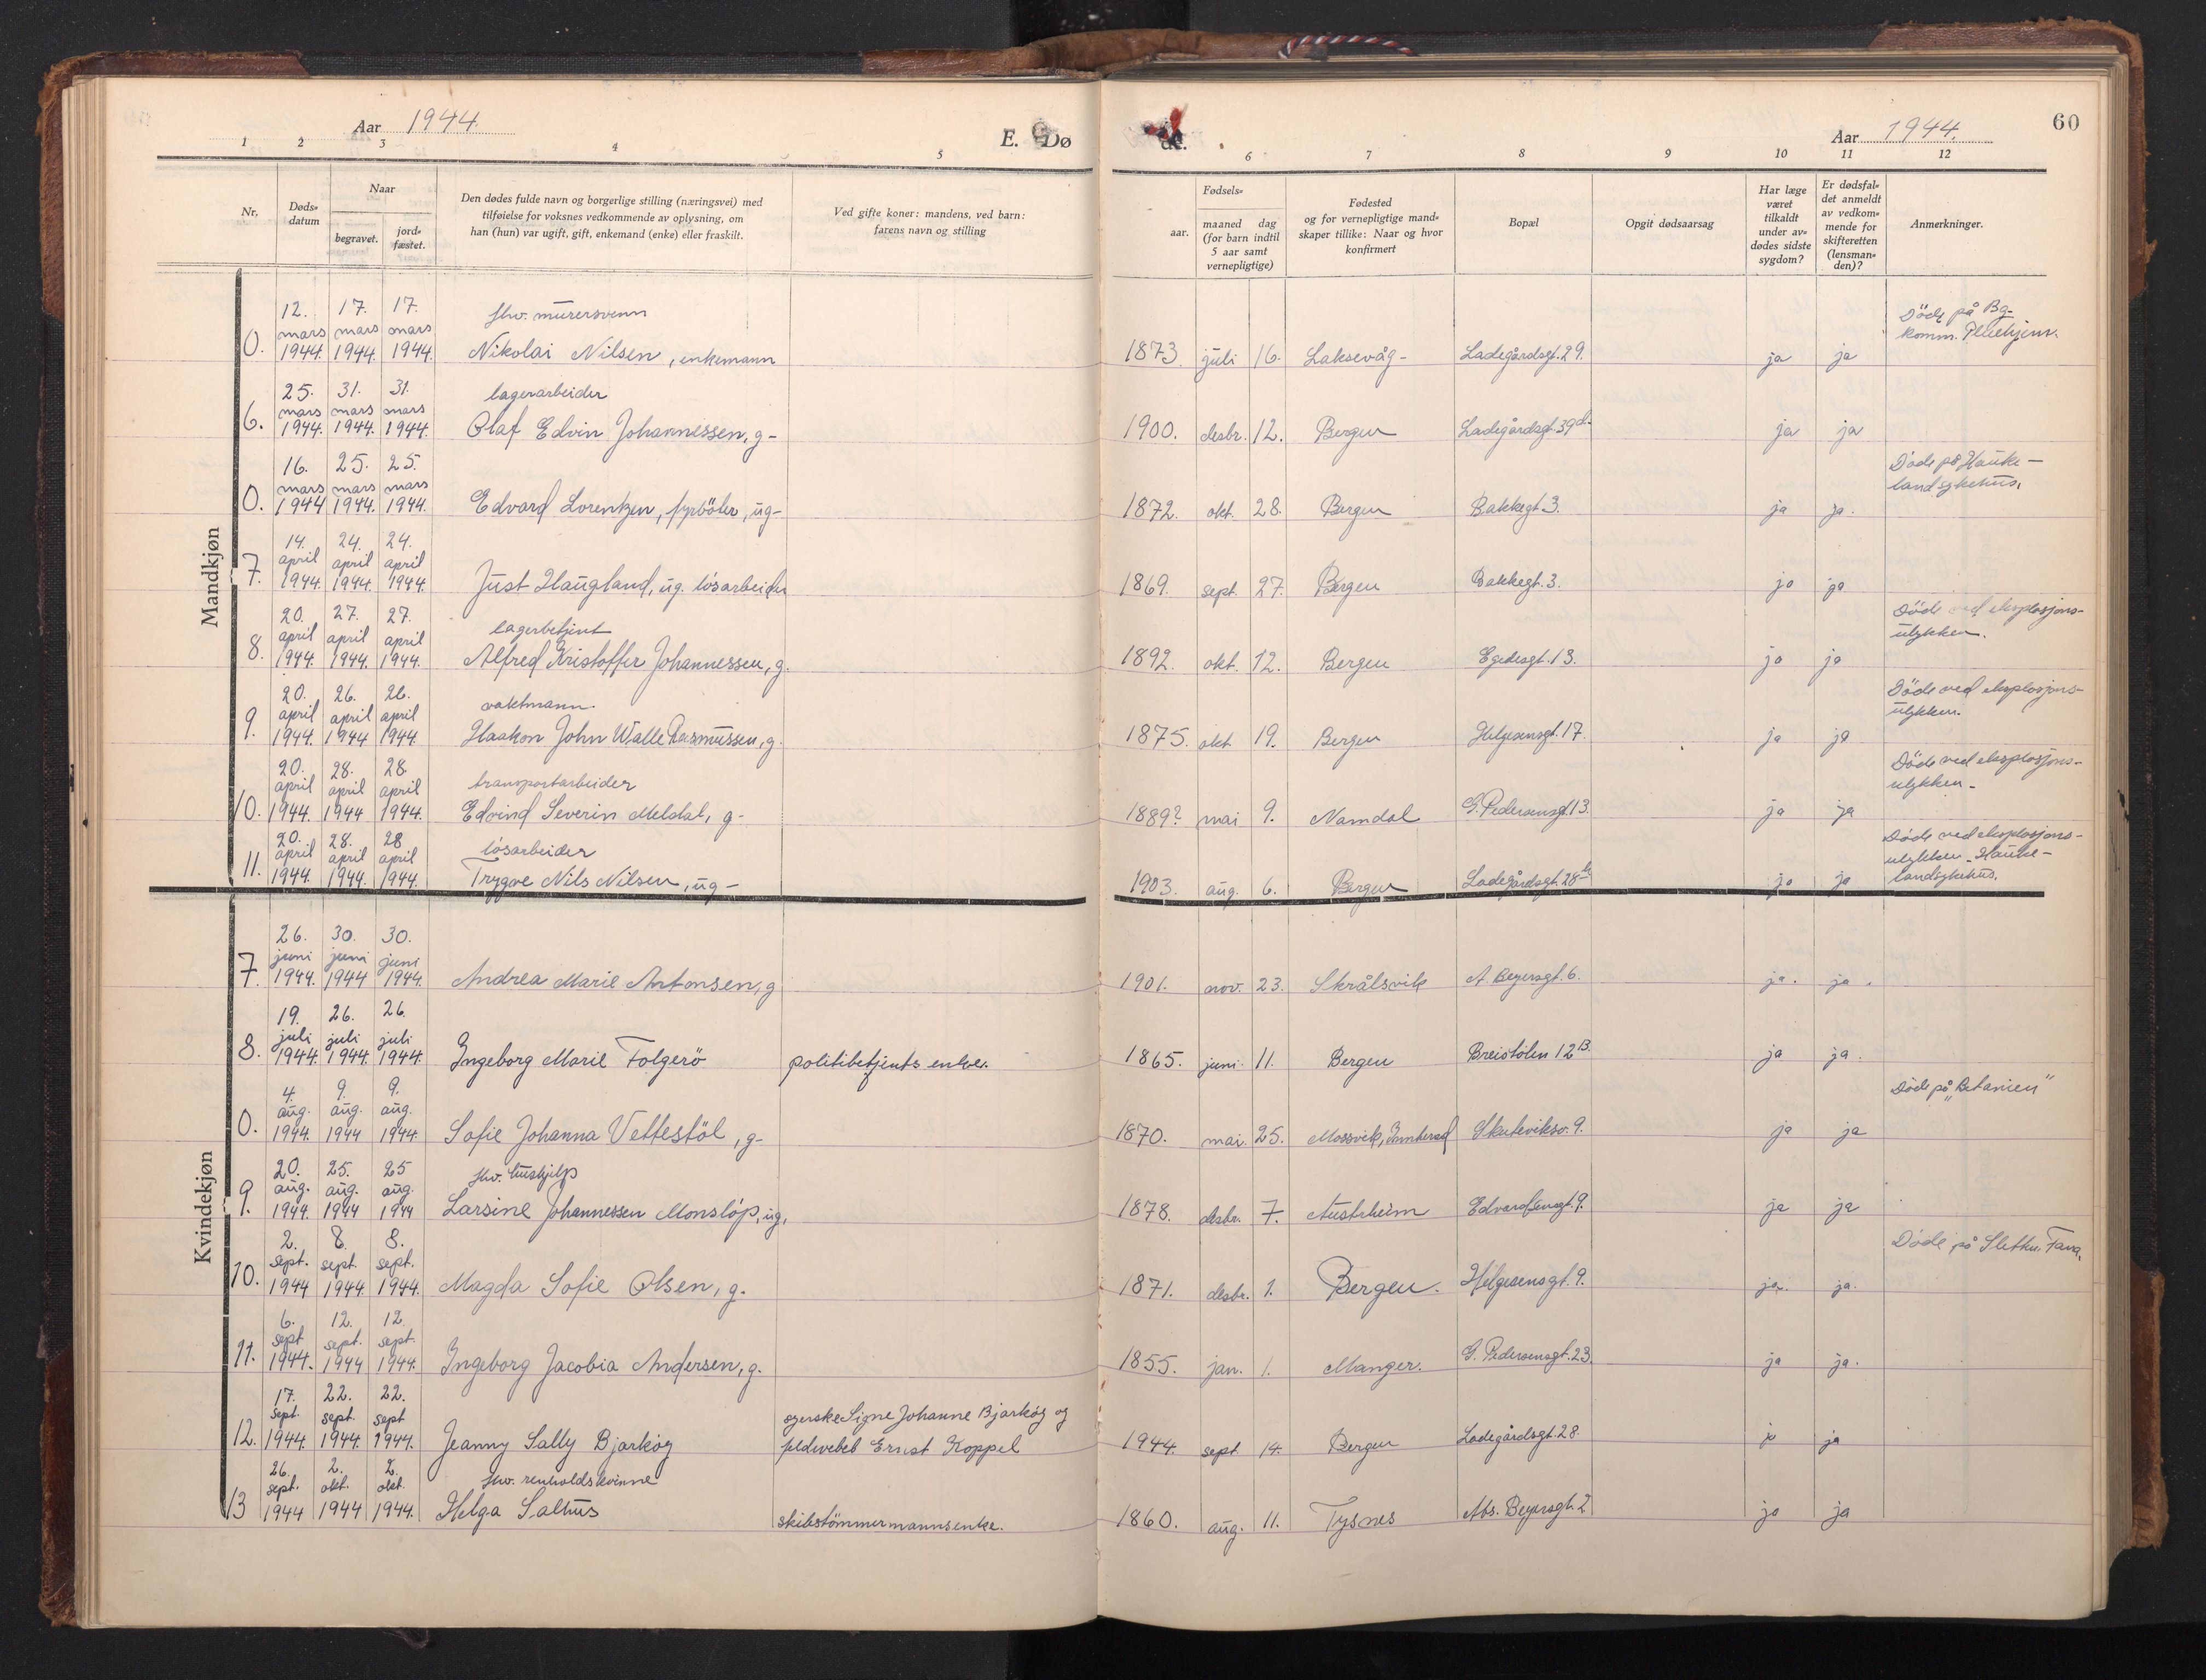 Aar 1944.
E. Dø
de.
Aar 1944.
60
1 2 3 4 5 6 7 8 9 10 11 12
Nr.
Døds-
datum
Naar
begravet.
jord-
fæstet.
Den dødes fulde navn og borgerlige stilling (næringsvei) med
tilføielse for voksnes vedkommende av oplysning, om
han (hun) var ugift, gift, enkemand (enke) eller fraskilt.
Ved gifte koner: mandens, ved barn:
farens navn og stilling
Fødsels-
aar.
maaned dag
(for barn indtil
5 aar samt
vernepligtige)
Fødested
og for vernepligtige mand-
skaper tillike: Naar og hvor
konfirmert
Bopæl
Opgit dødsaarsag
Har læge
været
tilkaldt
under av-
dødes sidste
sygdom?
Er dødsfal-
det anmeldt
av vedkom-
mende for
skifteretten
(lensman-
den)?
Anmerkninger.
Mandkjøn
12. 17. 17. fhv. murersvenn Døde på Bg.
mars mars mars komm. Pleiehjem.
0. 1944. 1944. 1944. Nikolai Nilsen, enkemann 1873 juli 16. Laksevåg- Ladegårdsgt. 29. ja ja
25. 31. 31. lagerarbeider
mars mars mars
6. 1944. 1944. 1944. Olaf Edvin Johannessen, g- 1900. desbr. 12. Bergen Ladegårdsgt. 39d. ja ja
16. 25. 25. Døde på Hauke-
mars mars mars landsykehus.
0. 1944 1944. 1944. Edvard Lorentzen, fyrbøter, ug- 1872. okt. 28. Bergen Bakkegt 3. ja ja.
14. 24. 24.
april april april
7. 1944. 1944. 1944. Just Haugland, ug. løsarbeider 1869. sept. 27. Bergen Bakkegt. 3. ja ja
20. 27. 27. lagerbetjent Døde ved eksplosjons-
april april april ulykken.
8. 1944. 1944. 1944. Alfred Kristoffer Johannessen, g. 1892. okt. 12. Bergen Egedesgt. 13. ja ja
20. 26. 26. vaktmann. Døde ved eksplosjons-
april april april ulykken.
9. 1944. 1944 1944. Haakon John Walle Rasmussen, g. 1875. okt 19. Bergen Helgesensgt. 17. ja ja
20. 28. 28. transportarbeider Døde ved eksplosjons-
april april april ulykken-
10. 1944. 1944 1944. Edvind Severin Meldal, g- 1889? mai 9. Namdal G. Pedersensgt. 13. ja ja
20. 28. 28 løsarbeider Døde ved eksplosjons-
april april april ulykken. Hauke-
11. 1944. 1944. 1944. Trygve Nils Nilsen, ug- 1903. aug. 6. Bergen Ladegårdsgt. 28 ja ja landsykehus.
Kvindekjøn
26. 30. 30.
juni juni juni
7. 1944. 1944 1944. Andrea Marie Antonsen, g 1901. nov. 23. Skrålsvik A. Beyersgt. 6. ja. ja.
19. 26. 26.
juli juli juli
8. 1944. 1944. 1944. Ingeborg Marie Folgerø politibetjents enke. 1865. juni. 11. Bergen Breistølen 12B. ja ja.
4. 9. 9. Døde på „Betanien"
aug. aug. aug.
0. 1944. 1944 1944. Sofie Johanna Vettestøl, g- 1870. mai. 25. Mossvik, Innherad Skuteviksv. 9. ja ja
20. 25. 25 fhv. hushjelp
aug. aug. aug.
9. 1944. 1944 1944 Larsine Johannessen Monsløp, ug, 1878. desbr. 7. Austrheim Edvardsensgt. 9. ja ja
2. 8. 8. Døde på Slettun. Fana.
sept. sept sept.
10. 1944 1944 1944. Magda Sofie Olsen, g. 1871. desbr. 1. Bergen. Helgesensgt. 9. ja. ja.
6. 12. 12.
sept sept. sept.
11. 1944. 1944 1944. Ingeborg Jacobia Andersen, g. 1855. jan. 1. Manger. G. Pedersensgt. 23. ja ja.
17. 22. 22.
sept. sept. sept syerske Signe Johanne Bjarkøy og
12. 1944. 1944. 1944. Jeanny Sally Bjarkøy feldwebel Ernst Koppel 1944. sept 14. Bergen Ladegårdsgt. 28. ja ja
26. 2. 2. fhv. renholdskvinne
sept. okt. okt.
13 1944 1944 1944. Helga Salhus skibstømmermannsenke. 1860. aug. 11. Tysnes Abs. Beyersgt. 2 ja ja